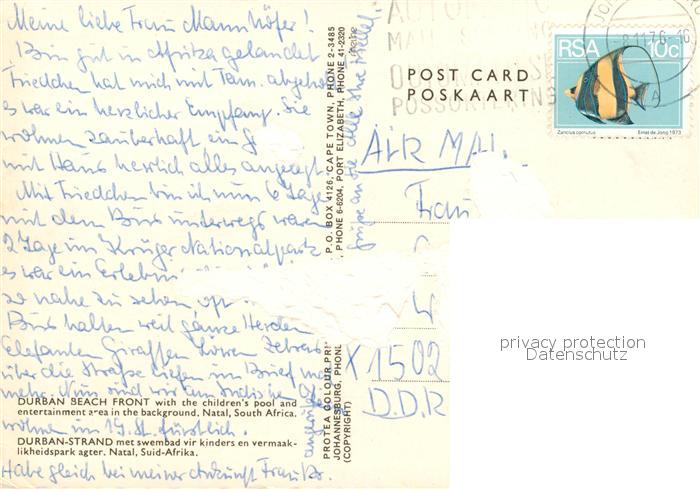 Meine liebe Frau Mannhöfer!
Bin gut in Afrika gelandet
Friedchen hat mich mit Fam. abgeholt
es war ein herzlicher Empfang. Sie
wohnen zauberhaft ein
mit Haus herrlich alles angelegt
Mit Friedchen bin ich nun 6 Tage
mit dem Bus unterwegs waren
2 Tage im Krüger Nationalpark
es war ein Erlebnis
so nahe zu sehen oft
Bus halten weil ganze Herden
Elefanten Giraffen Löwen Zebras
über die Straße liefen im Brief mehr
mehr. Nun sind wir am Indischen
wohnen im 19. St. fürstlich.
Habe gleich bei meiner Ankunft Frau
DURBAN BEACH FRONT with the children's pool and
entertainment area in the background. Natal, South Africa.
DURBAN-STRAND met swembad vir kinders en vermaak-
likheidspark agter. Natal, Suid-Afrika.
PROTEA COLOUR PRI
JOHANNESBURG, PHONE
(COPYRIGHT)
P.O. BOX 4126, CAPE TOWN, PHONE 2-3485
PHONE 6-6204, PORT ELIZABETH, PHONE 41-2320
POST CARD
POSKAART
RSA 10c
Zanclus cornutus
Ernst de Jong 1973
8.11.76
AIR MAIL
Frau
X 1502
D.D.R
privacy protection
Datenschutz